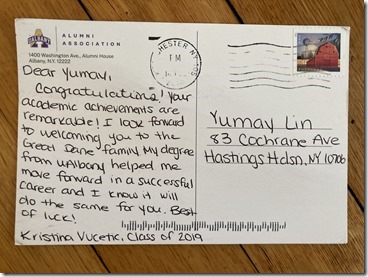 ALBANY
ALUMNI
ASSOCIATION
1400 Washington Ave., Alumni House
Albany, N.Y. 12222
Dear Yumay,
Congratulations! Your
academic achievements are
remarkable! I look forward
to welcoming you to the
Great Dane family. My degree
from UAlbany helped me
move forward in a successful
career and I know it will
do the same for you. Best
of luck!
Kristina Vucetic, Class of 2019
PM
Yumay Lin
83 Cochrane Ave
Hastings Hdsn, NY 10706